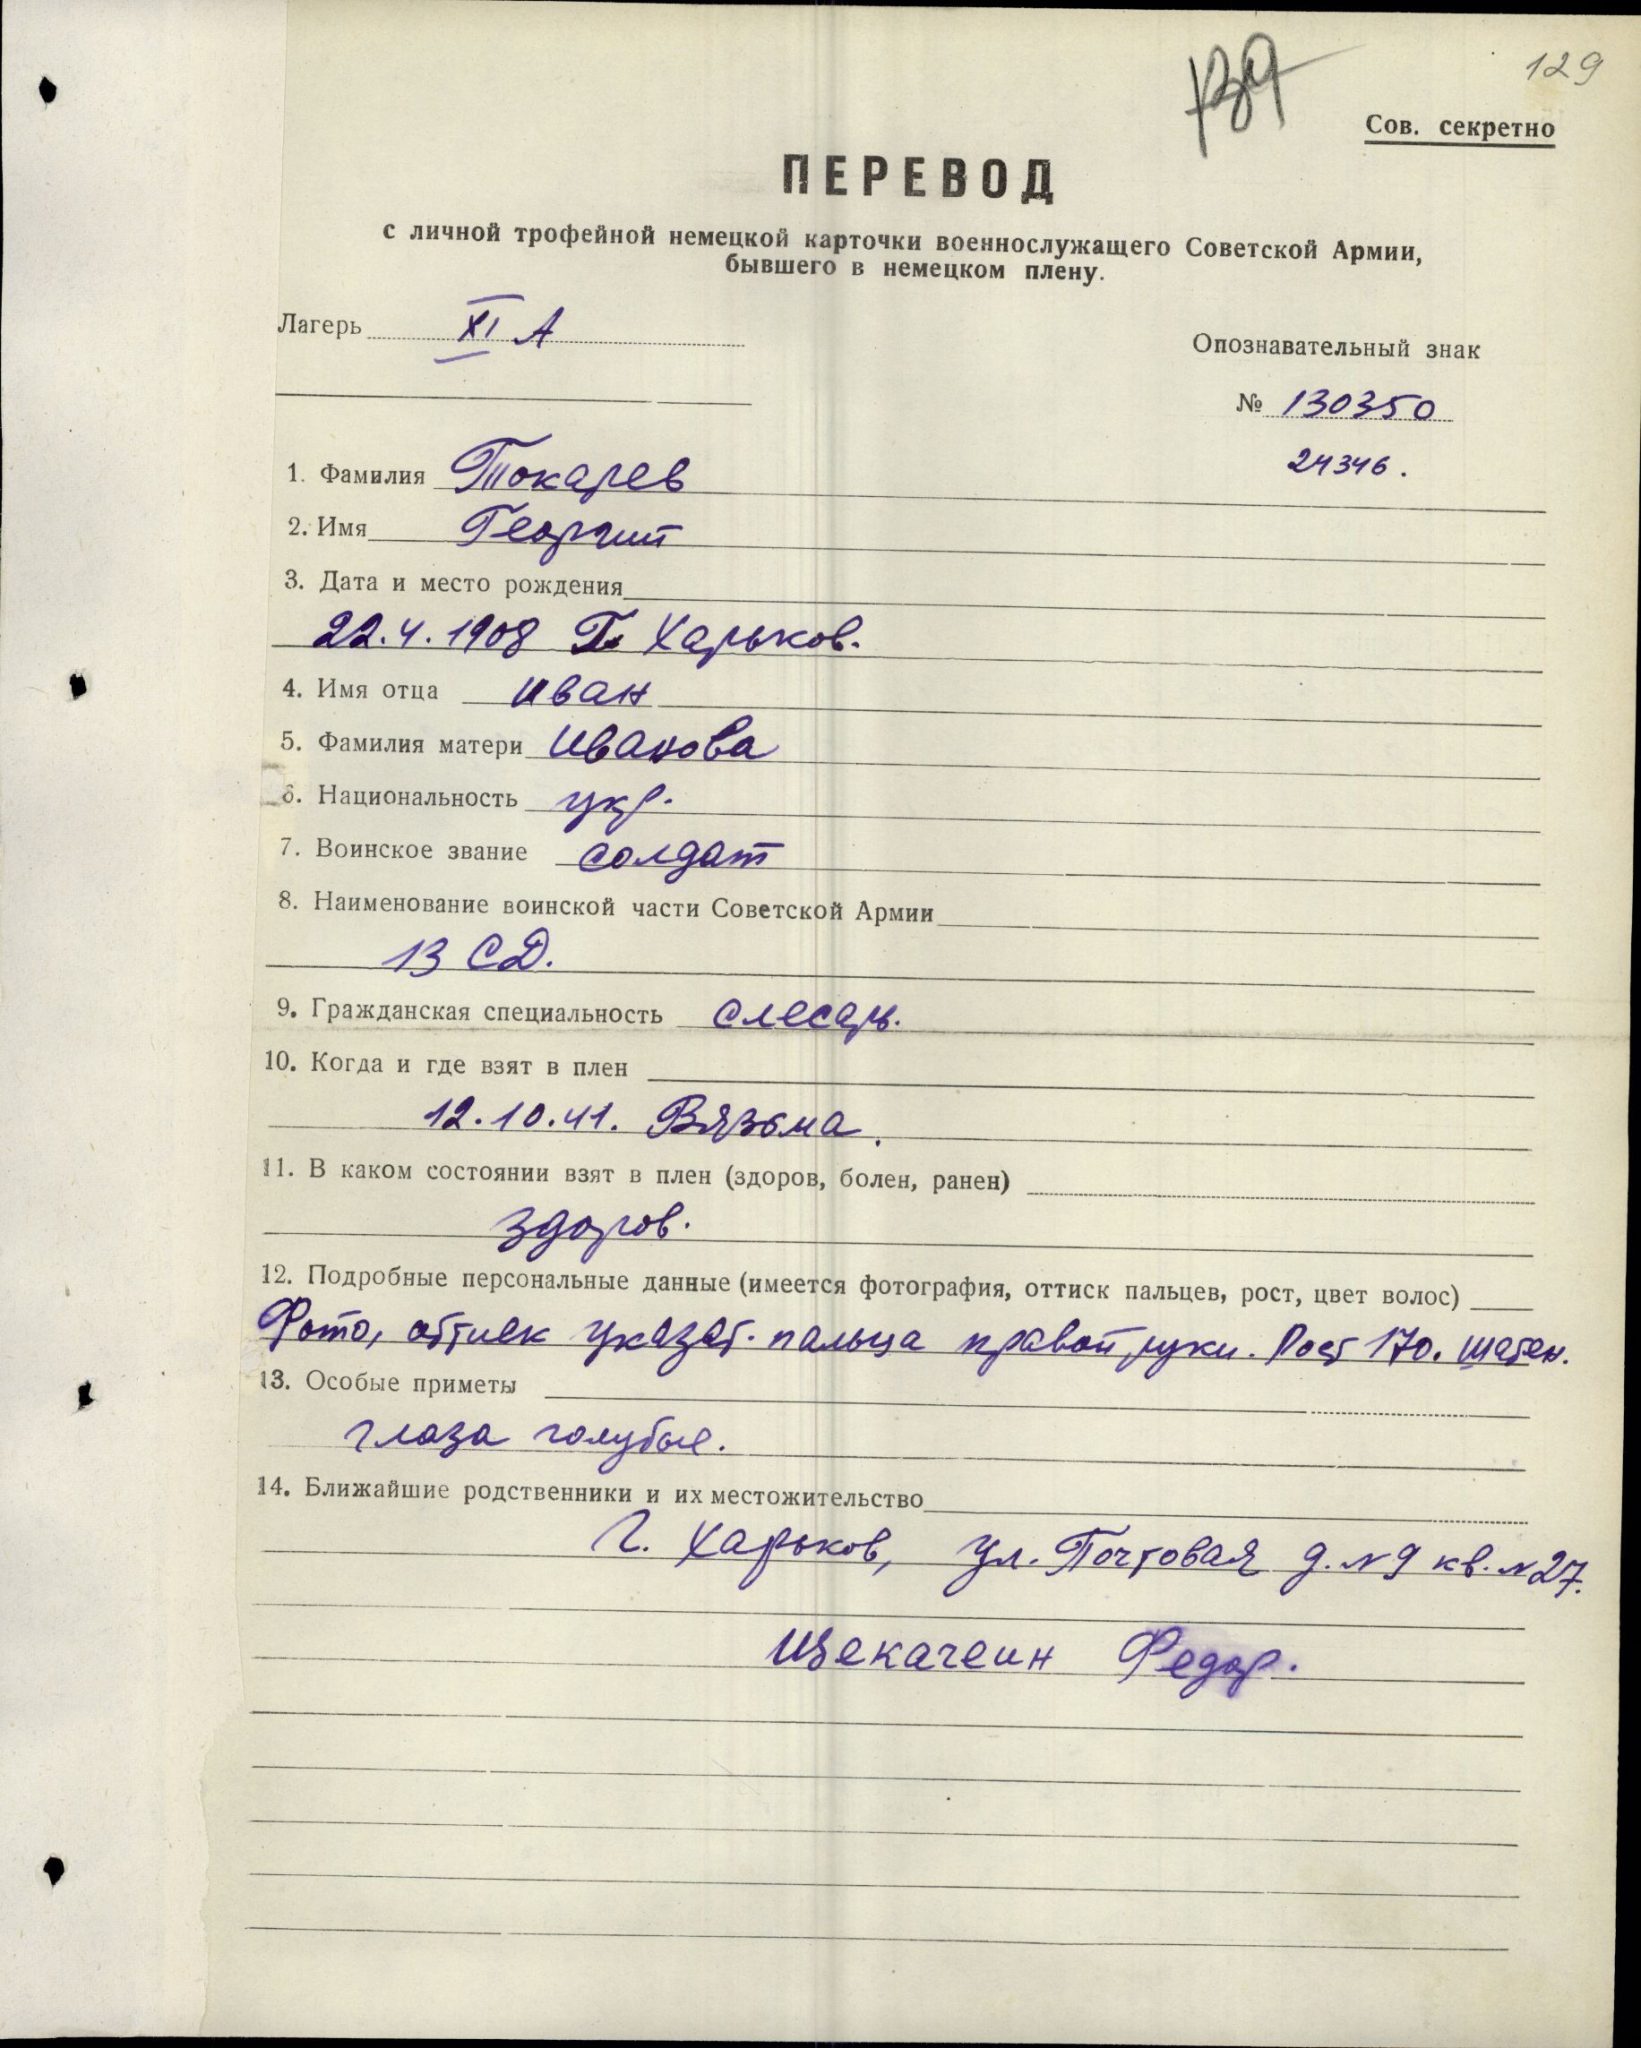 139
129
Сов. секретно
ПЕРЕВОД
с личной трофейной немецкой карточки военнослужащего Советской Армии,
бывшего в немецком плену.
Лагерь XI А
Опознавательный знак
№ 130350
24346.
1. Фамилия Токарев
2. Имя Георгий
3. Дата и место рождения
22.4.1908 Г. Харьков.
4. Имя отца Иван
5. Фамилия матери Иванова
6. Национальность укр.
7. Воинское звание солдат
8. Наименование воинской части Советской Армии
13 СД.
9. Гражданская специальность слесарь.
10. Когда и где взят в плен
12.10.41. Вязьма.
11. В каком состоянии взят в плен (здоров, болен, ранен)
здоров.
12. Подробные персональные данные (имеется фотография, оттиск пальцев, рост, цвет волос)
Фото, оттиск указат. пальца правой руки. Рост 170. шатен.
13. Особые приметы
глаза голубые.
14. Ближайшие родственники и их местожительство
г. Харьков, ул. Почтовая д. N 9 кв. N 27.
Федор.